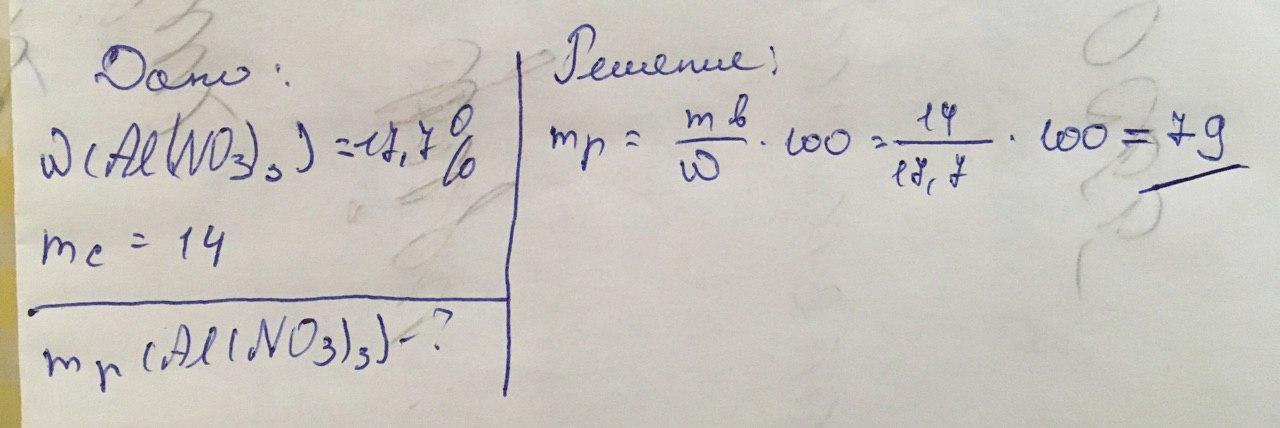 Дано:
W(Al(NO3)3) = 17,7%
mc = 14
mp(Al(NO3)3) - ?
Решение:
mp = mв/W · 100 = 14/17,7 · 100 = 79